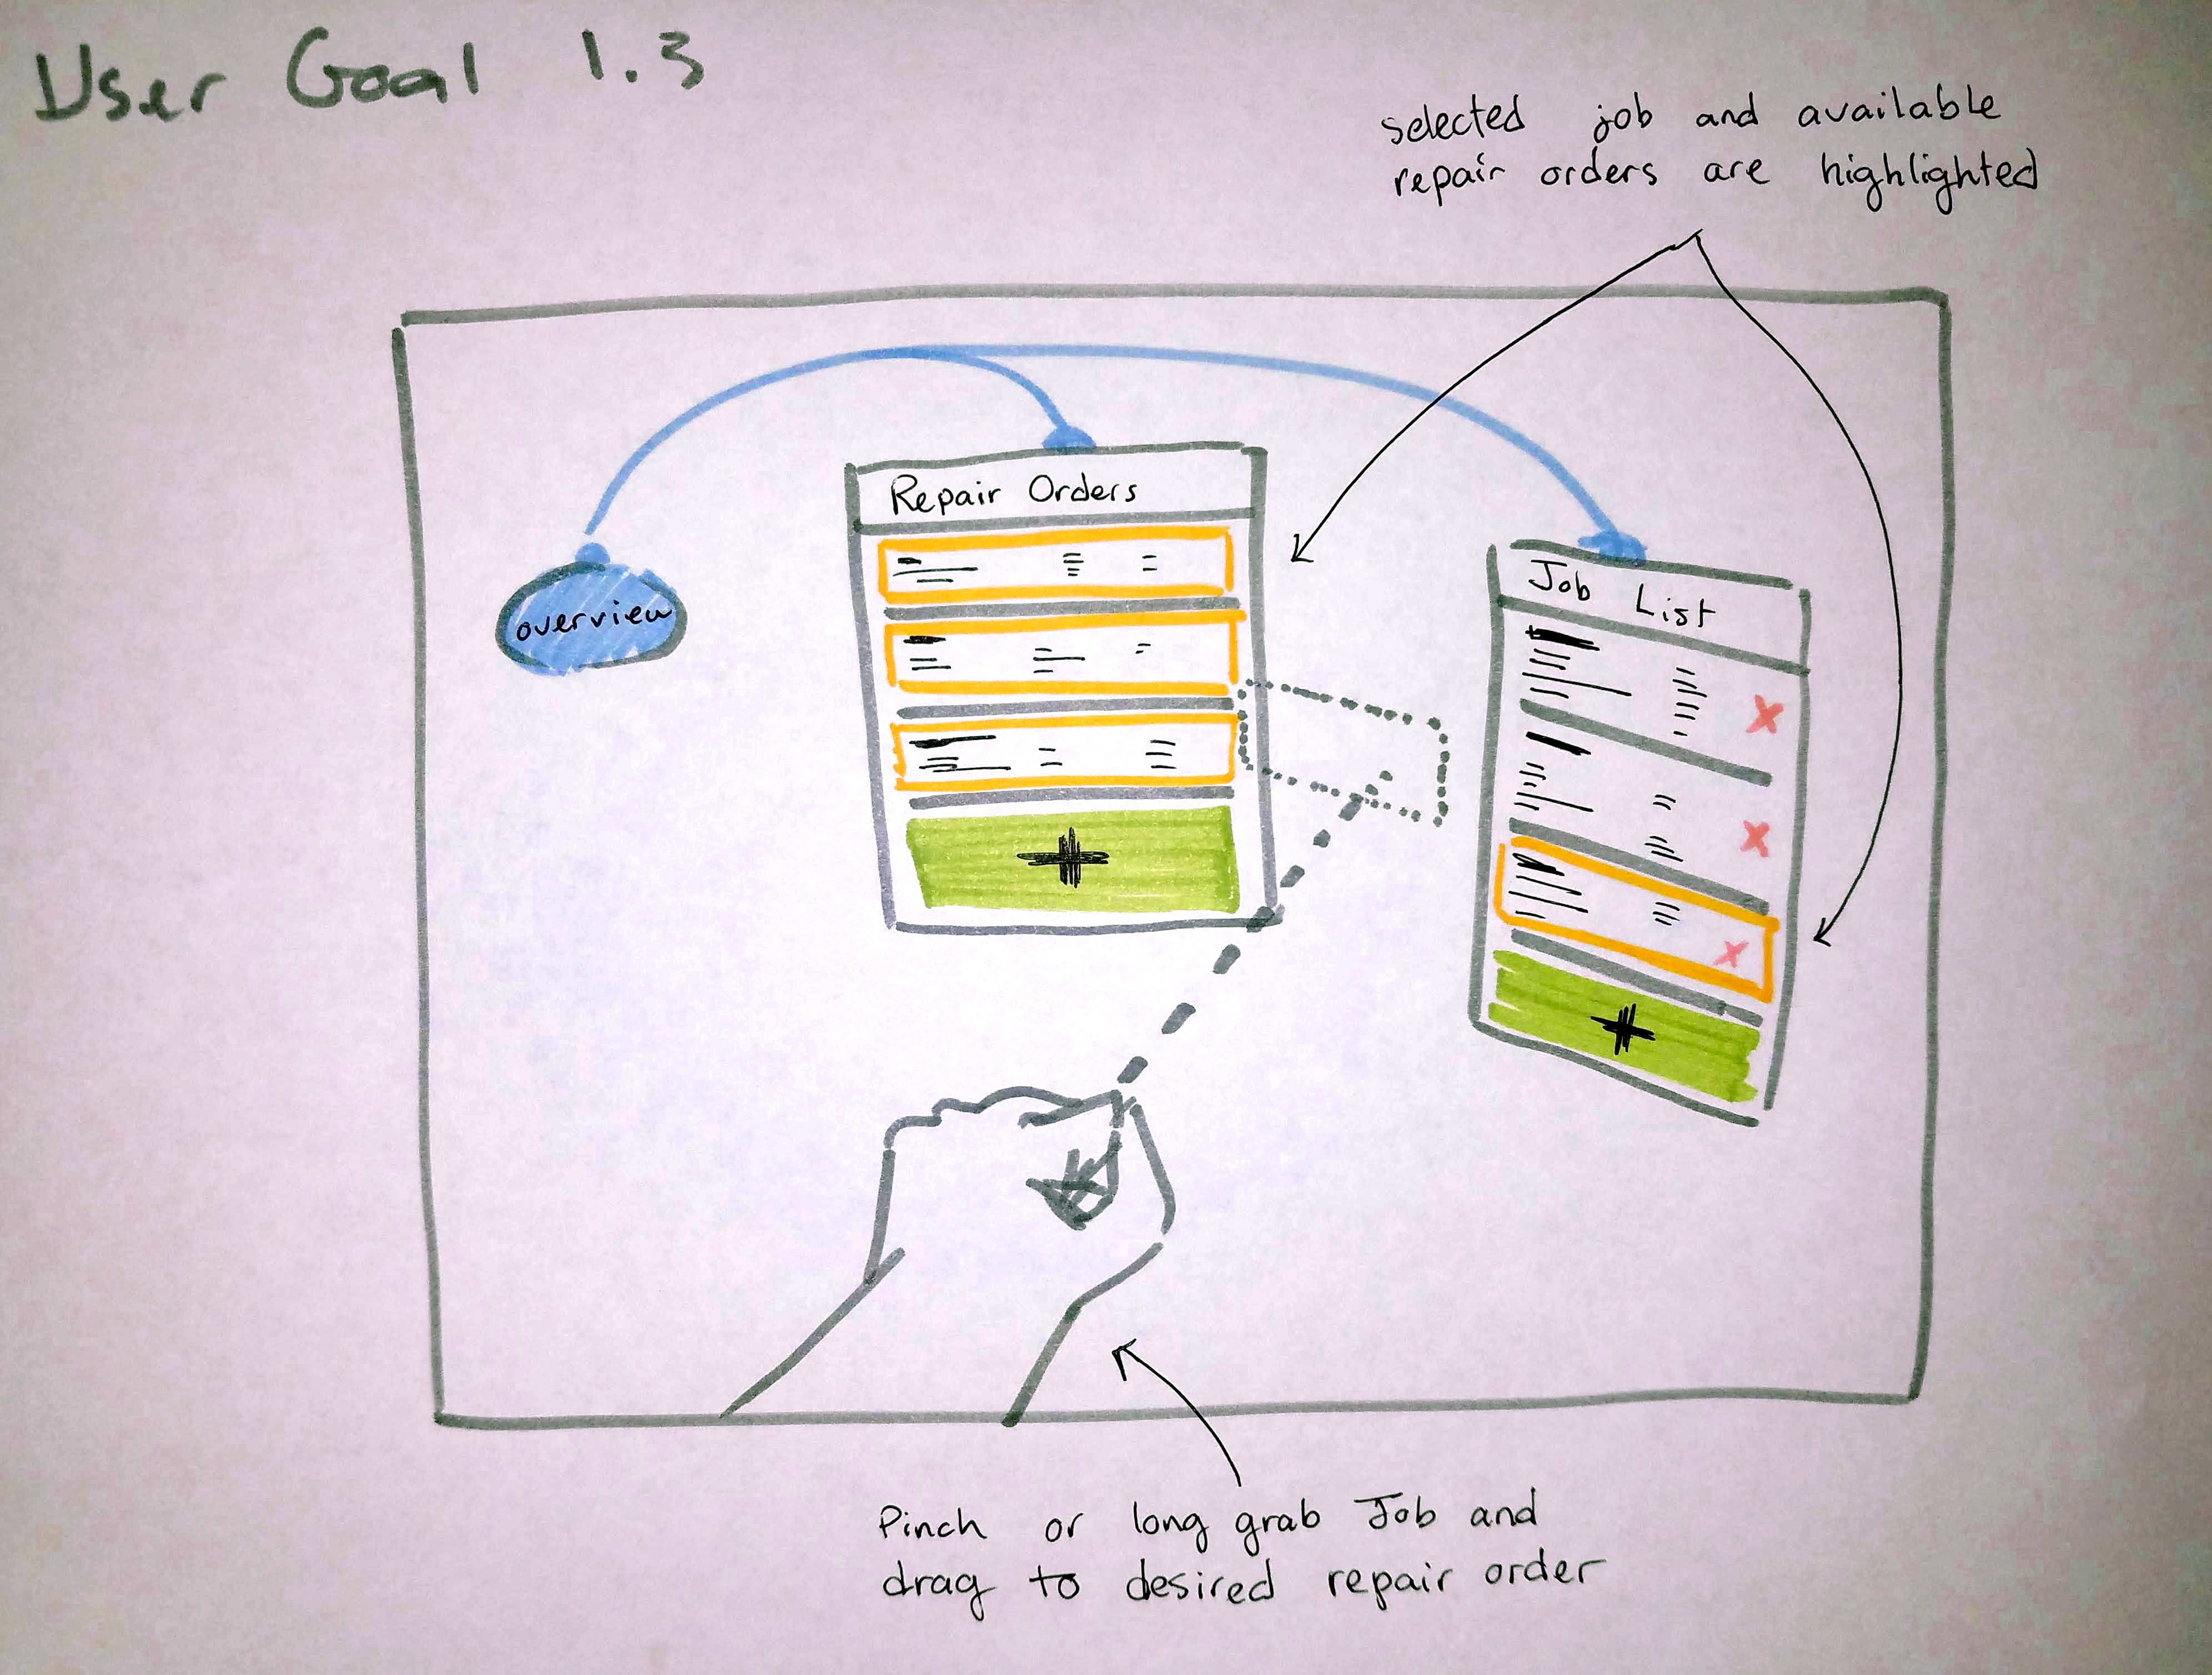 User Goal 1.3
selected job and available
repair orders are highlighted
Repair Orders
Job List
overview
Pinch or long grab Job and
drag to desired repair order